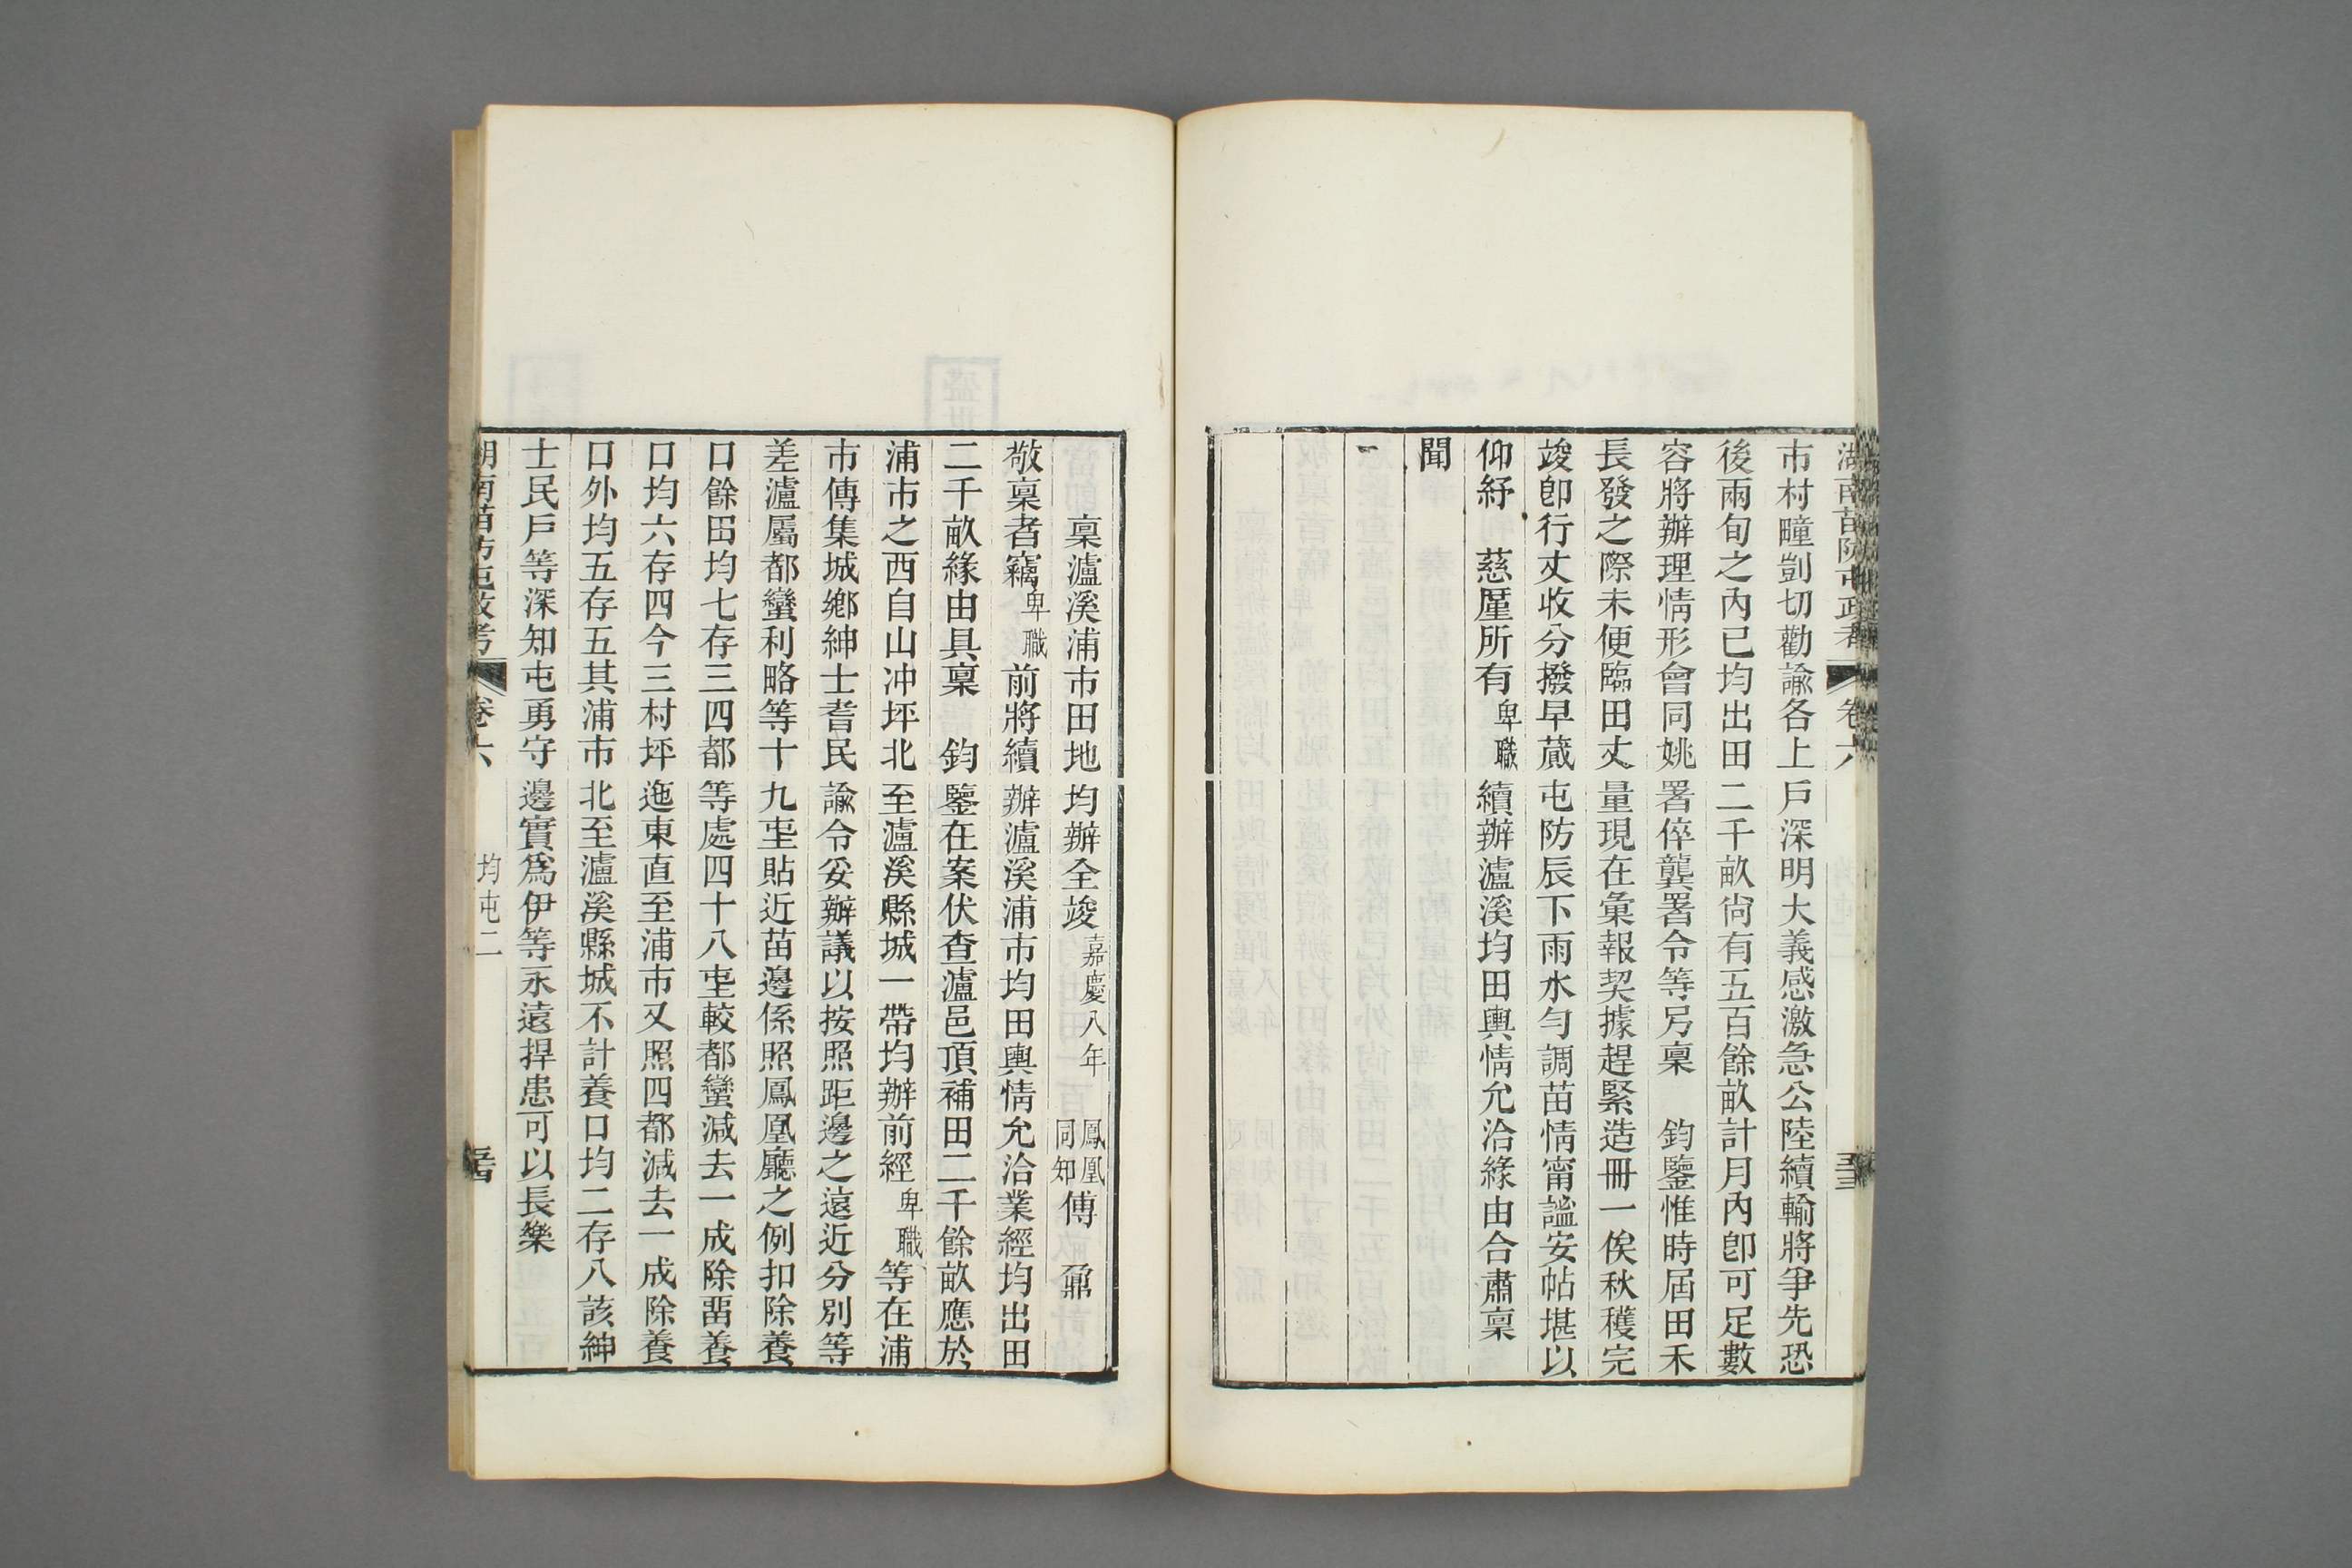 湖南苗防屯政考 卷六
市村疃剴切勸諭各上戶深明大義感激急公陸續輸將爭先恐
後兩旬之內已均出田二千畝尙有五百餘畝計月內卽可足數
容將辦理情形會同姚署倅龔署令等另稟　鈞鑒惟時屆田禾
長發之際未便臨田丈量現在彙報契據趕緊造冊一俟秋穫完
竣卽行丈收分撥早蕆屯防辰下雨水勻調苗情甯謐安帖堪以
仰紓　慈厪所有卑職續辦瀘溪均田輿情允洽緣由合肅稟
聞
稟瀘溪浦市田地均辦全竣 嘉慶八年 鳳凰同知傅鼐
敬稟者竊卑職前將續辦瀘溪浦市均田輿情允洽業經均出田
二千畝緣由具稟　鈞鑒在案伏查瀘邑頂補田二千餘畝應於
浦市之西自山冲坪北至瀘溪縣城一帶均辦前經卑職等在浦
市傳集城鄉紳士耆民諭令妥辦議以按照距邊之遠近分別等
差瀘屬都蠻利略等十九寨貼近苗邊係照鳳凰廳之例扣除養
口餘田均七存三四都等處四十八寨較都蠻減去一成除畱養
口均六存四今三村坪迤東直至浦市又照四都減去一成除養
口外均五存五其浦市北至瀘溪縣城不計養口均二存八該紳
士民戶等深知屯勇守邊實爲伊等永遠捍患可以長樂
湖南苗防屯政考 卷六 均屯二